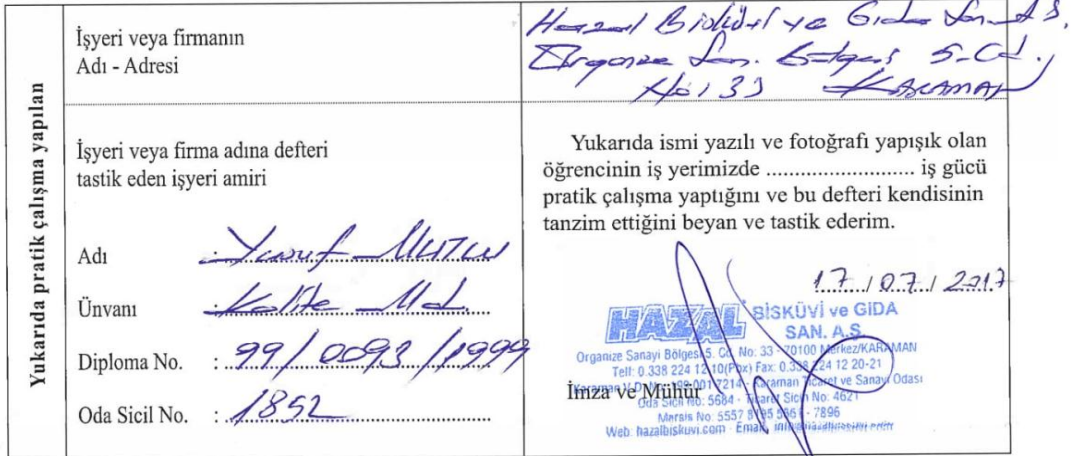 Yukarıda pratik çalışma yapılan
İşyeri veya firmanın
Adı - Adresi
Hazal Bisküvi ve Gıda San. A.Ş.
Organize San. Bölgesi 5. Cd.
No: 33 KARAMAN
İşyeri veya firma adına defteri
tastik eden işyeri amiri
Adı : Yusuf MUTLU
Ünvanı : Kalite Md.
Diploma No. : 99/0093/1999
Oda Sicil No. : 1852
Yukarıda ismi yazılı ve fotoğrafı yapışık olan
öğrencinin iş yerimizde ............................ iş gücü
pratik çalışma yaptığını ve bu defteri kendisinin
tanzim ettiğini beyan ve tastik ederim.
17/07/2017
HAZAL BİSKÜVİ ve GIDA
SAN. A.Ş.
Organize Sanayi Bölgesi 5. Cd. No: 33 - 70100 Merkez/KARAMAN
Tell: 0.338 224 12 10(Pbx) Fax: 0.338 224 12 20-21
Karaman V.D. No: Karaman Ticaret ve Sanayi Odası
Oda Sicil No: 5684 - Ticaret Sicil No: 4621
Mersis No: 5557 - 7896
Web: hazalbiskuvi.com - Email:
İmza ve Mühür